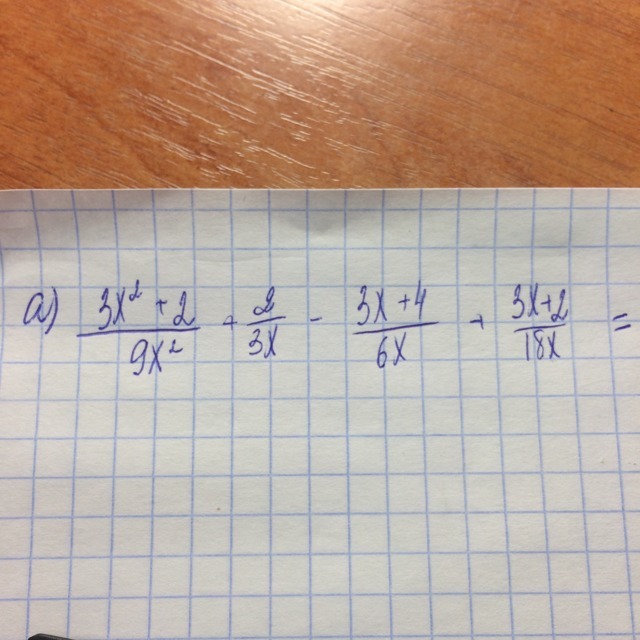 a) (3x² + 2)/(9x²) + 2/(3x) - (3x + 4)/(6x) + (3x + 2)/(18x) =